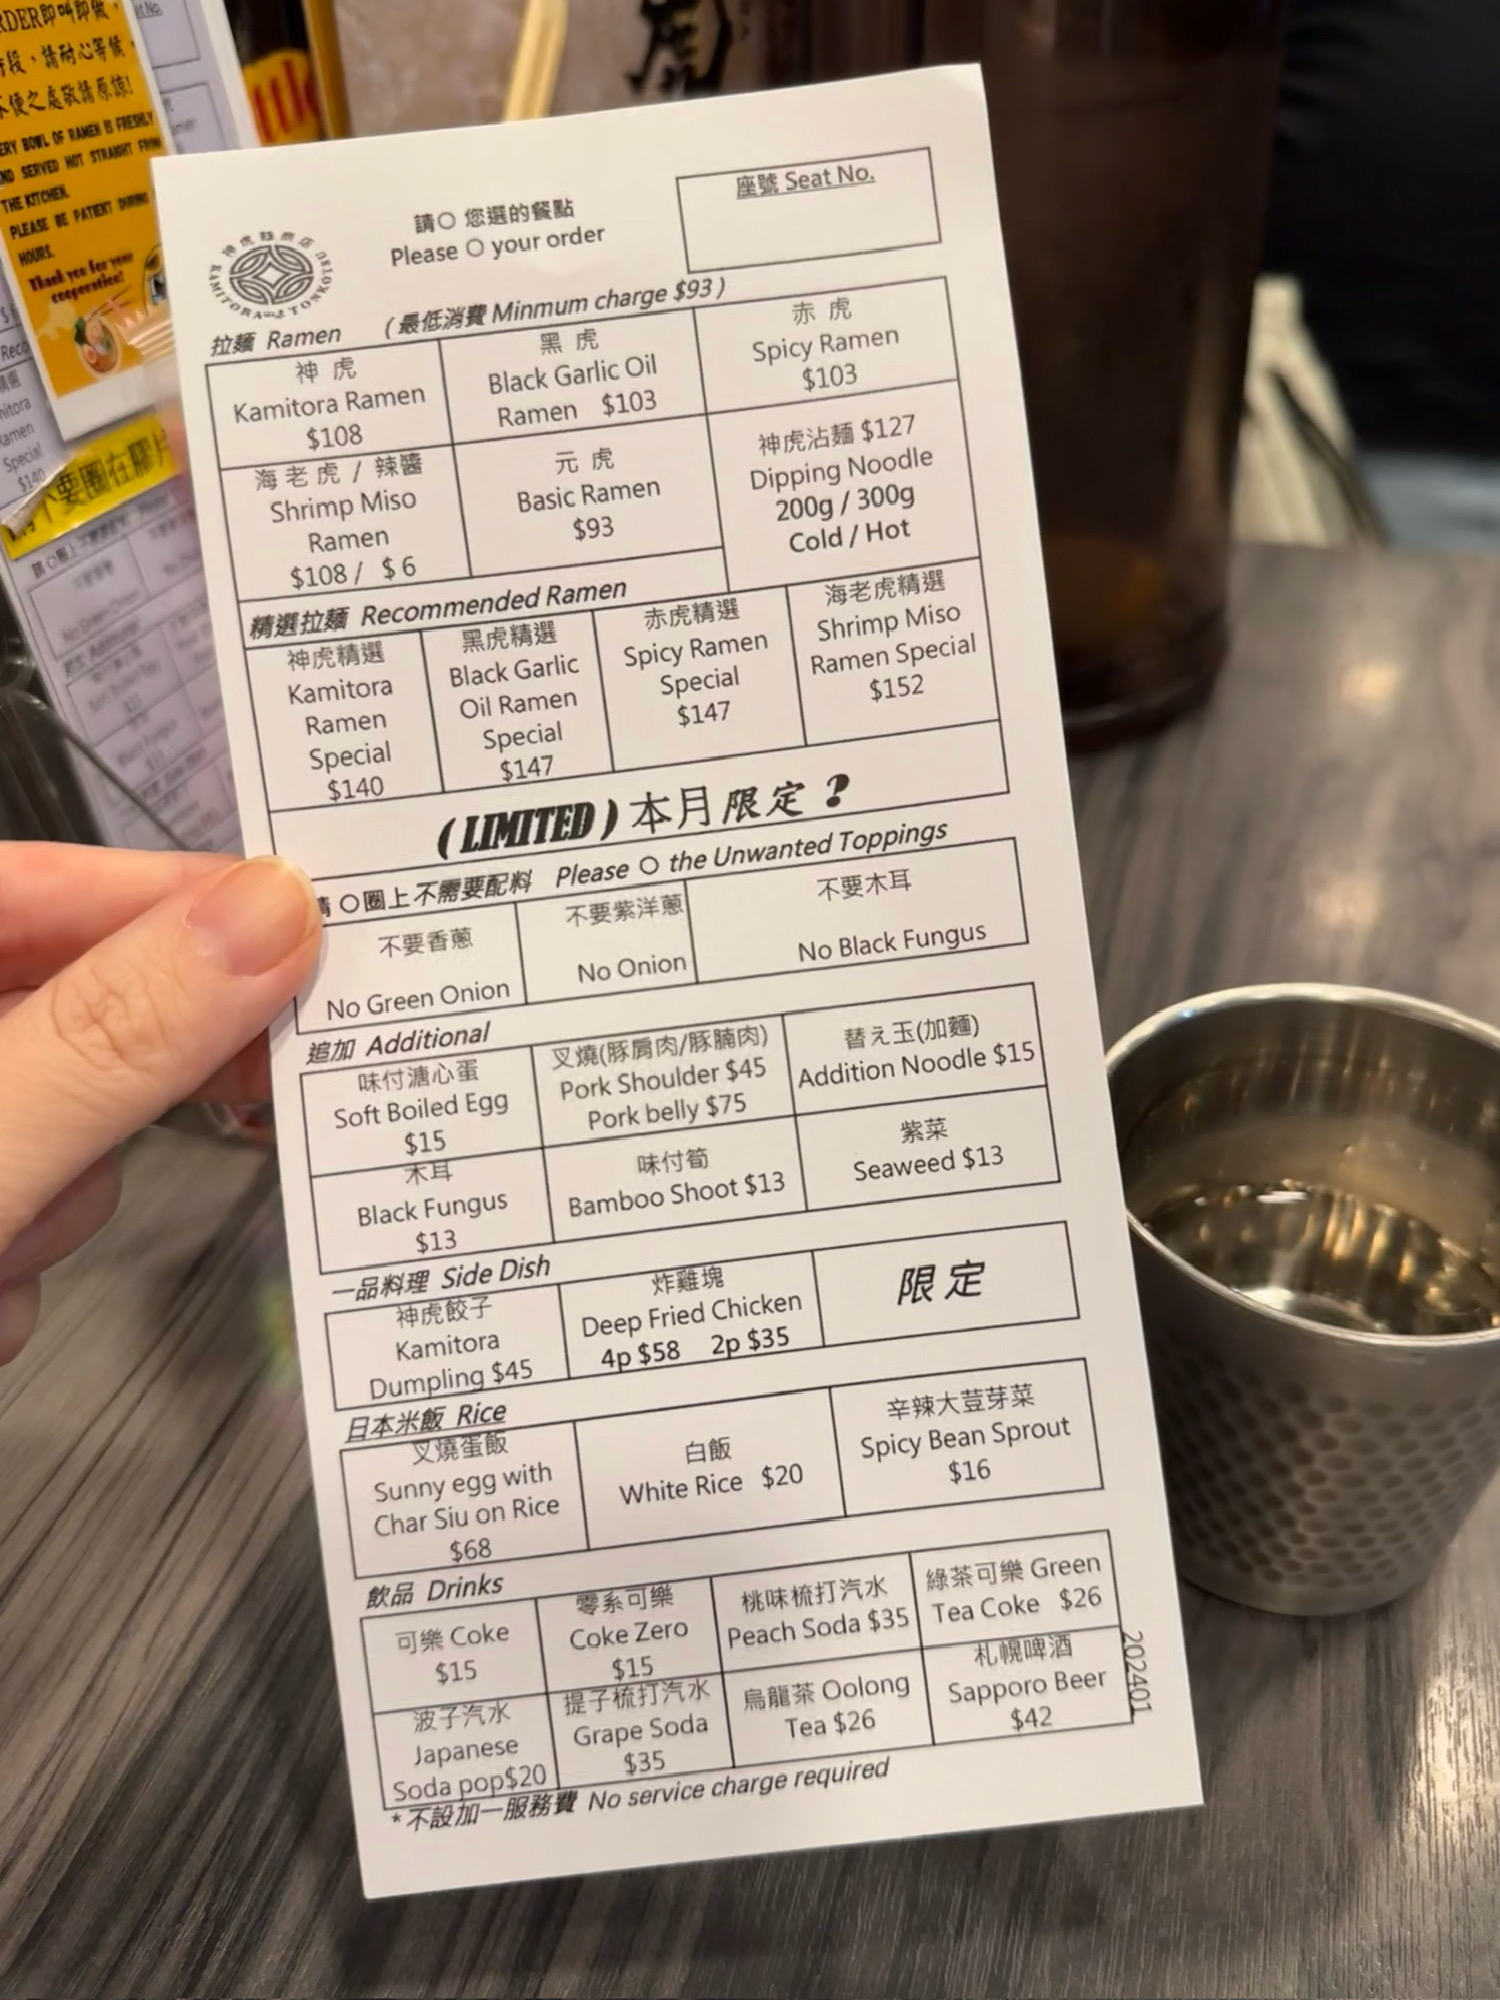 RDER即叫即做，
時段，請耐心等候，
不便之處敬請原諒!
ERY BOWL OF RAMEN IS FRESHLY
ND SERVED HOT STRAIGHT FROM
THE KITCHEN.
PLEASE BE PATIENT DURING
HOURS.
Thank you for your
cooperation!
不要圈在膠片
請〇 您選的餐點
Please 〇 your order
座號 Seat No.
神虎豚骨店
KAMITORA TONKOTSU
拉麵 Ramen （最低消費 Minmum charge $93）
神 虎
Kamitora Ramen
$108
黑 虎
Black Garlic Oil
Ramen $103
赤 虎
Spicy Ramen
$103
海 老 虎 / 辣醬
Shrimp Miso
Ramen
$108 / $ 6
元 虎
Basic Ramen
$93
神虎沾麵 $127
Dipping Noodle
200g / 300g
Cold / Hot
精選拉麵 Recommended Ramen
神虎精選
Kamitora
Ramen
Special
$140
黑虎精選
Black Garlic
Oil Ramen
Special
$147
赤虎精選
Spicy Ramen
Special
$147
海老虎精選
Shrimp Miso
Ramen Special
$152
(LIMITED) 本月限定 ?
請 〇圈上不需要配料 Please 〇 the Unwanted Toppings
不要香蔥
No Green Onion
不要紫洋蔥
No Onion
不要木耳
No Black Fungus
追加 Additional
味付溏心蛋
Soft Boiled Egg
$15
叉燒(豚肩肉/豚腩肉)
Pork Shoulder $45
Pork belly $75
替え玉(加麵)
Addition Noodle $15
木耳
Black Fungus
$13
味付筍
Bamboo Shoot $13
紫菜
Seaweed $13
一品料理 Side Dish
神虎餃子
Kamitora
Dumpling $45
炸雞塊
Deep Fried Chicken
4p $58 2p $35
限定
日本米飯 Rice
叉燒蛋飯
Sunny egg with
Char Siu on Rice
$68
白飯
White Rice $20
辛辣大荳芽菜
Spicy Bean Sprout
$16
飲品 Drinks
可樂 Coke
$15
零系可樂
Coke Zero
$15
桃味梳打汽水
Peach Soda $35
綠茶可樂 Green
Tea Coke $26
波子汽水
Japanese
Soda pop$20
提子梳打汽水
Grape Soda
$35
烏龍茶 Oolong
Tea $26
札幌啤酒
Sapporo Beer
$42
202401
*不設加一服務費 No service charge required